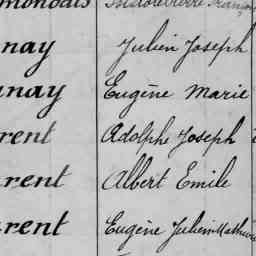 nay Julien Joseph
nay Eugène Marie
rent Adolphe Joseph
rent Albert Emile
rent Eugène Julien Mathurin